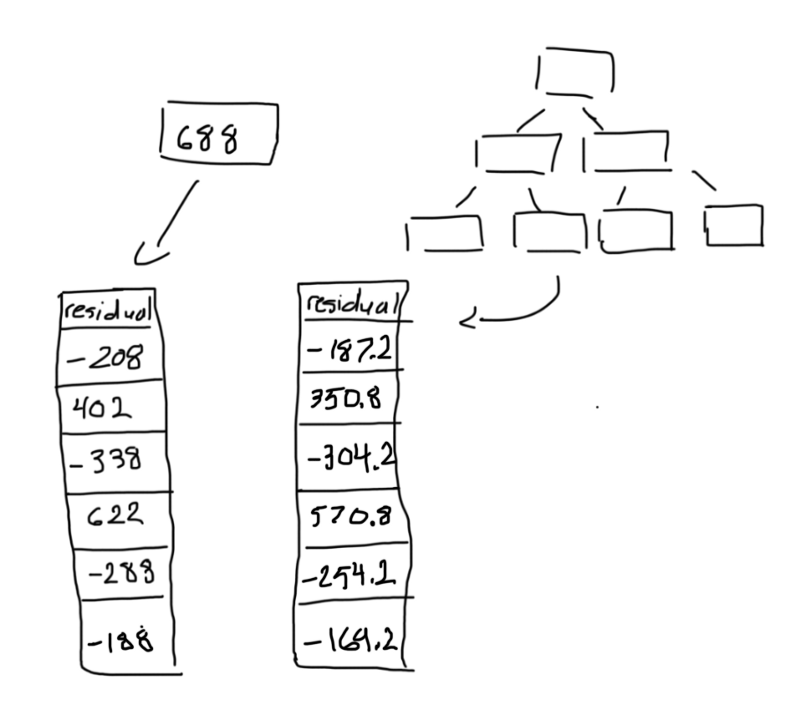 688
residual
-208
402
-338
622
-288
-188
residual
-187.2
350.8
-304.2
570.8
-254.2
-169.2